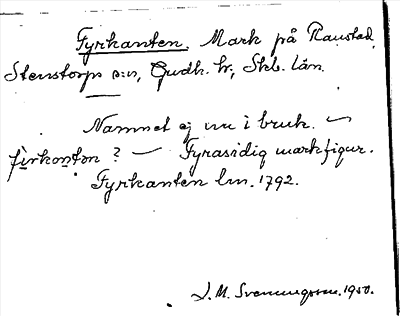 Fyrkanten. Mark på Raustad,
Stenstorps s:n, Gudh. hr, Skb. län.
Namnet ej nu i bruk. —
fìrkontən? — Fyrasidig markfigur.
Fyrkanten lm. 1792.
J. M. Svenungsson. 1950.